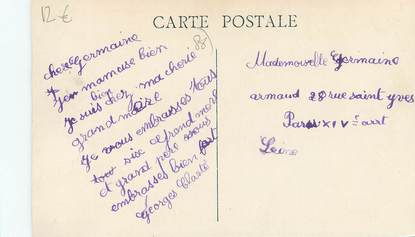 12 €
CARTE POSTALE
85
chere Germaine
Jen mamuse bien
bien
Je suis chez ma cherie
grand mère
Je vous embrasses tous
tous six et grand mere
et grand père vous
embrasses bien fort
Georges
Mademoiselle Germaine
armaud 28 rue saint yves
Paris XIV e arrt
Seine